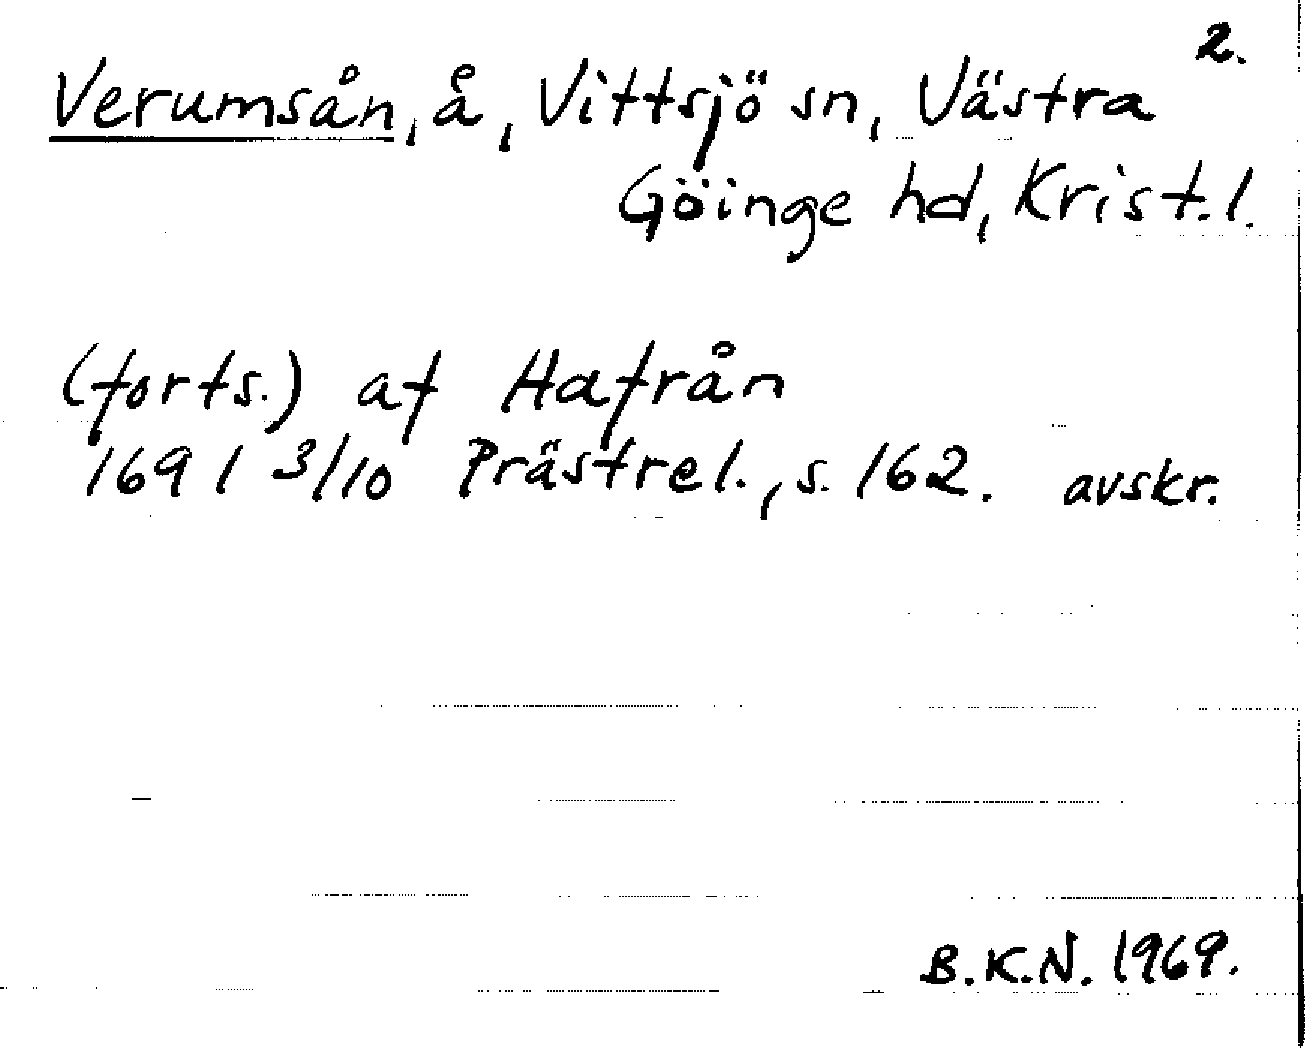 2.
Verumsån, å, Vittsjö sn, Västra
Göinge hd, Krist. l.
(forts.) af Hafrån
1691 3/10 Prästrel., s. 162. avskr.
B.K.N. 1969.